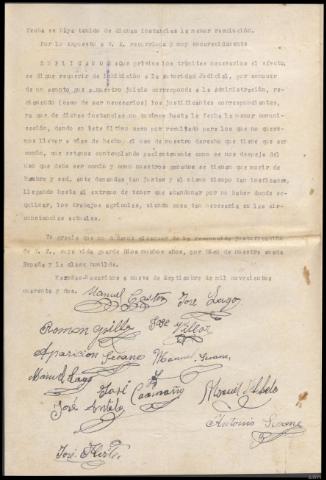 fecha se haya tenido de dichas instancias la menor resolución.
Por lo expuesto a V. E. recurrimos y muy encarecidamente
SUPLICAMOS que previos los trámites necesarios al efecto,
se digne requerir de inhibición a la Autoridad Judicial, por conocer
de un asunto que a nuestro juicio corresponde a la Administración, re-
(caso de ser necesarios) los justificantes correspondientes,
ya que de dichas instancias no tuvimos hasta la fecha la menor comuni-
cación, dando en este último caso por resultado para los que no quere-
mos llevar a vías de hecho, el uso de nuestro derecho que tiene que ser
común, que estemos contemplando pacientemente como se nos despoja del
uso que debe ser común y como nuestros ganados se tienen que morir de
hambre y sed, ante demandas tan justas y al mismo tiempo tan lastimosas,
llegando hasta el extremo de tener que abandonar por no haber donde es-
quilmar, los trabajos agrícolas, siendo cosa tan necesaria en las cir-
cunstancias actuales.
Es gracia que no dudamos alcanzar de la reconocida justificación
de V. E., cuya vida guarde Dios muchos años, por bien de nuestra santa
España y la clase humilde.
a nueve de Septiembre de mil novecientos
cuarenta y dos.
Manuel Castro José Lago
Roman José Villar
Aparicion Seoane Manuel Seoane
Manuel Lago José Caamaño Manuel
José Antelo
Antonio Seoane
José